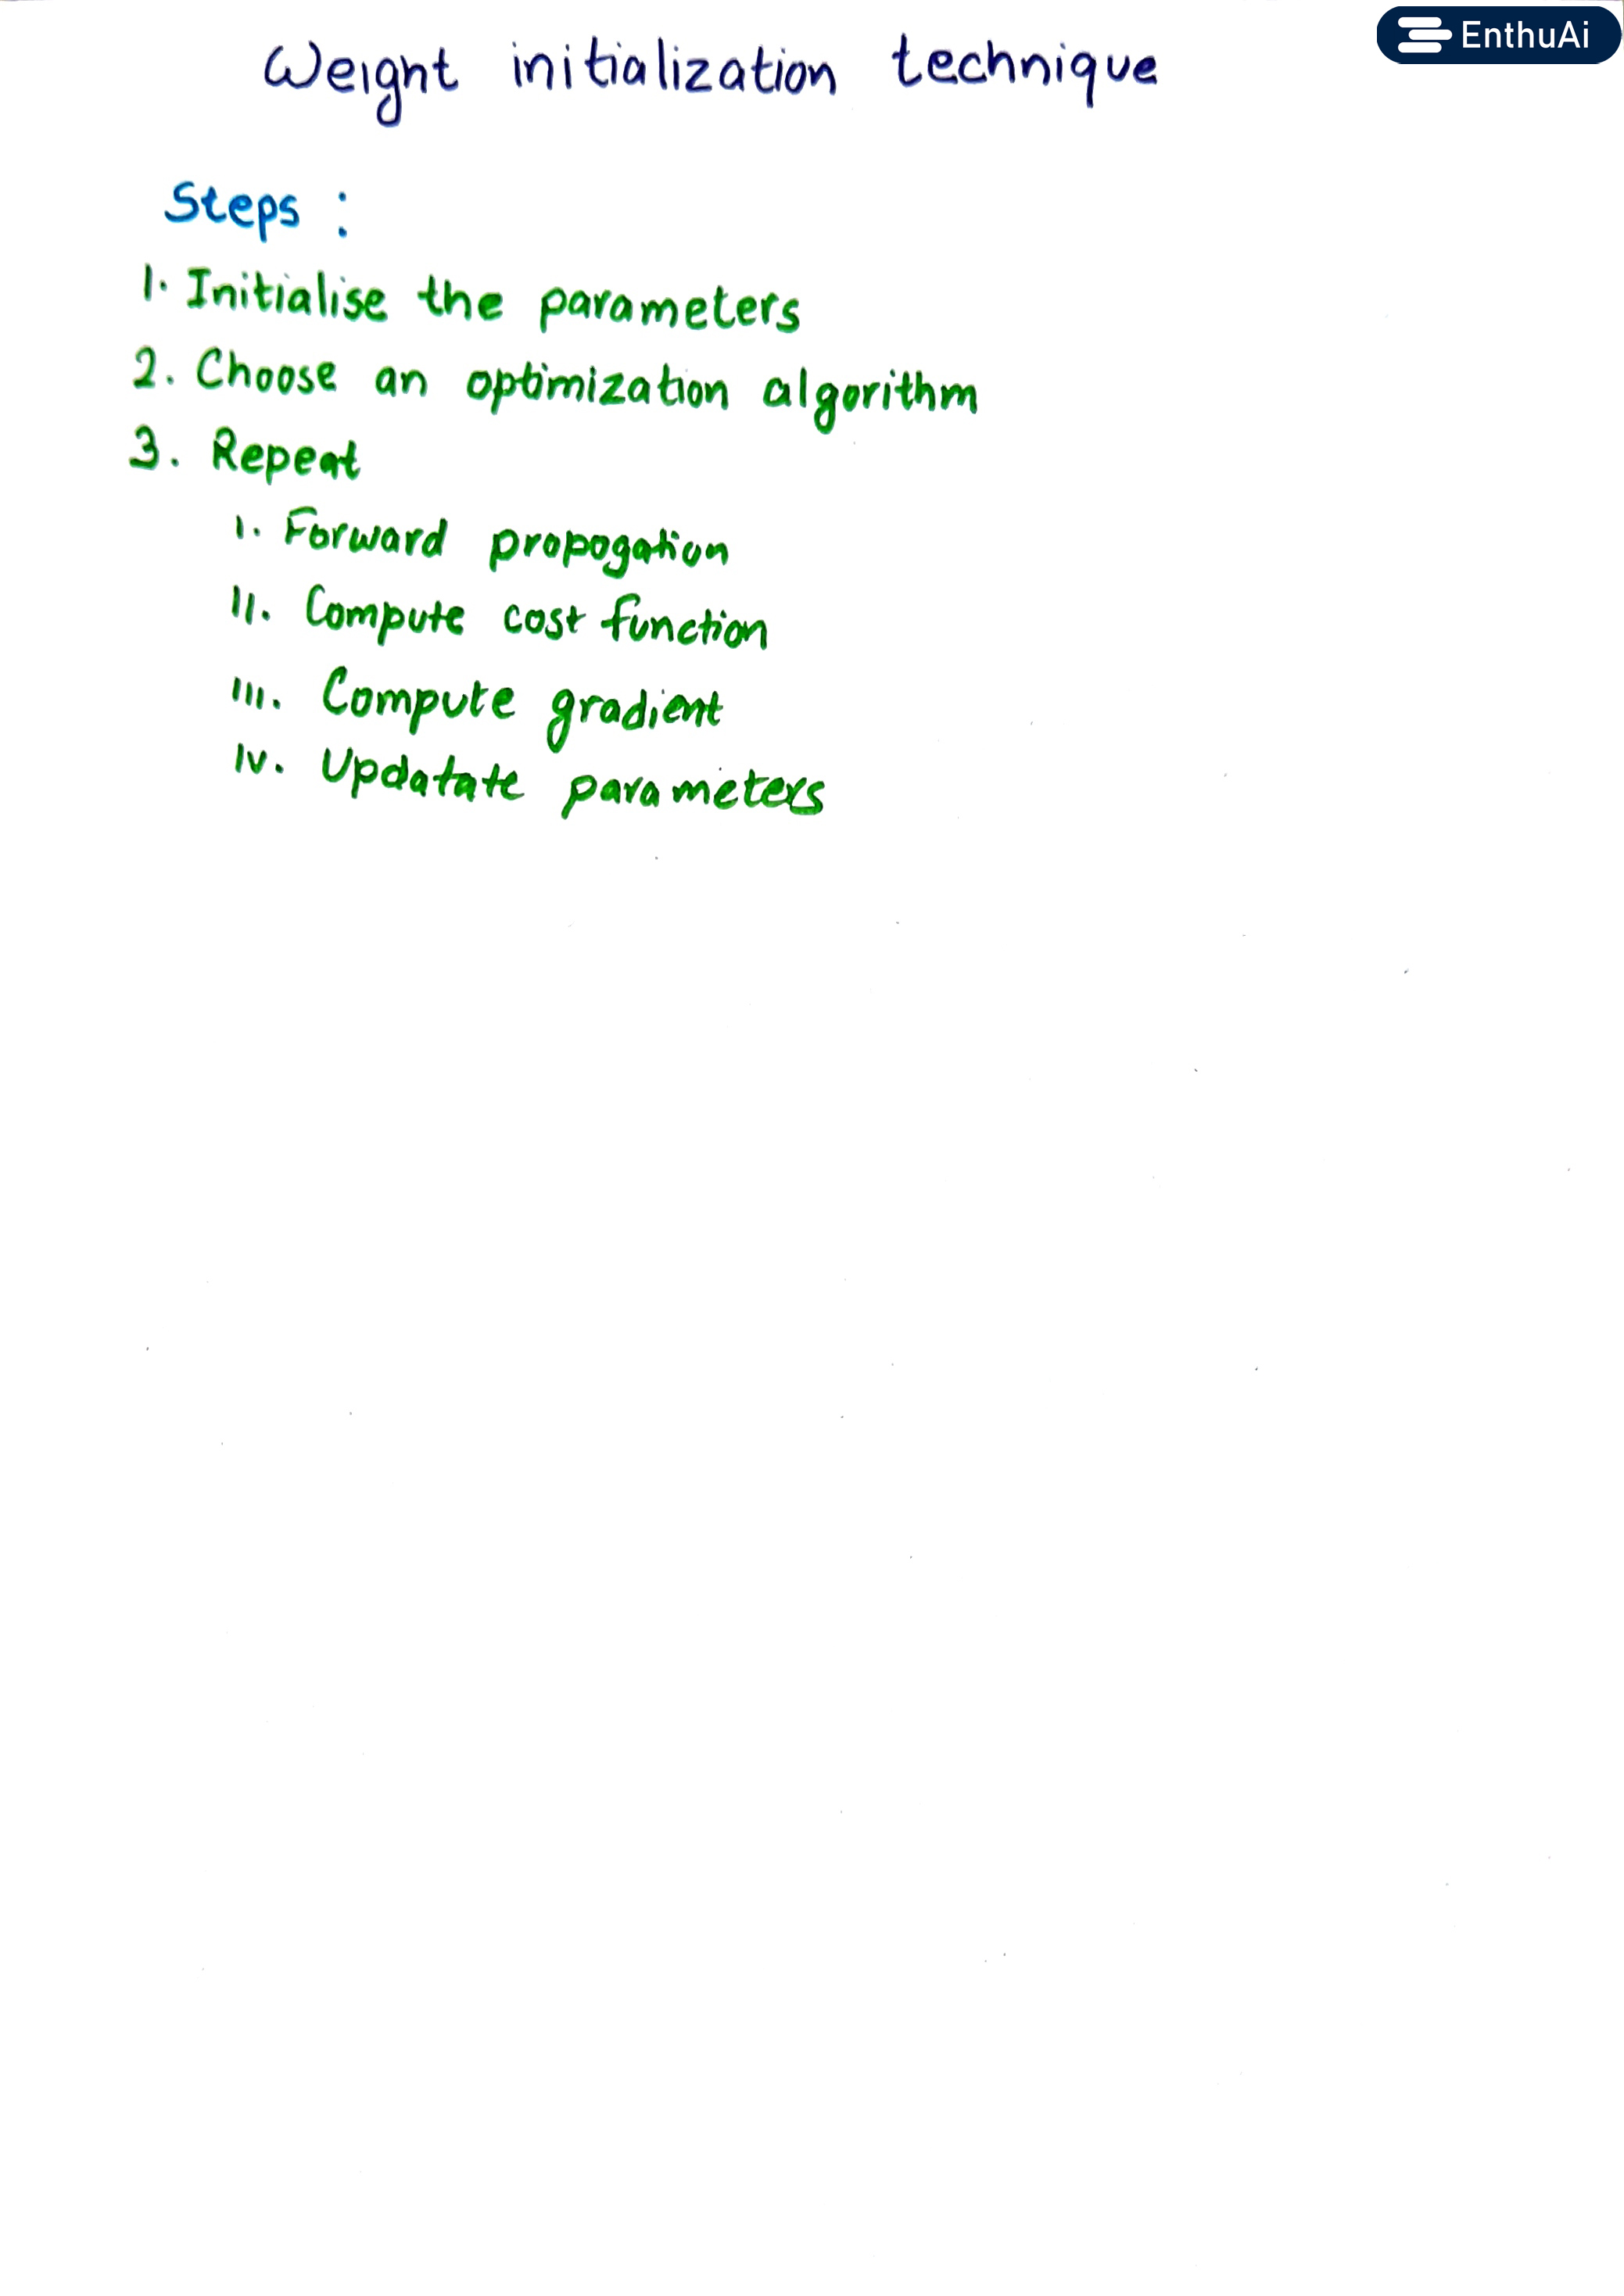 EnthuAi
Weight initialization technique
Steps :
1. Initialise the parameters
2. Choose an optimization algorithm
3. Repeat
I. Forward propogation
II. Compute cost function
III. Compute gradient
IV. Updatate parameters